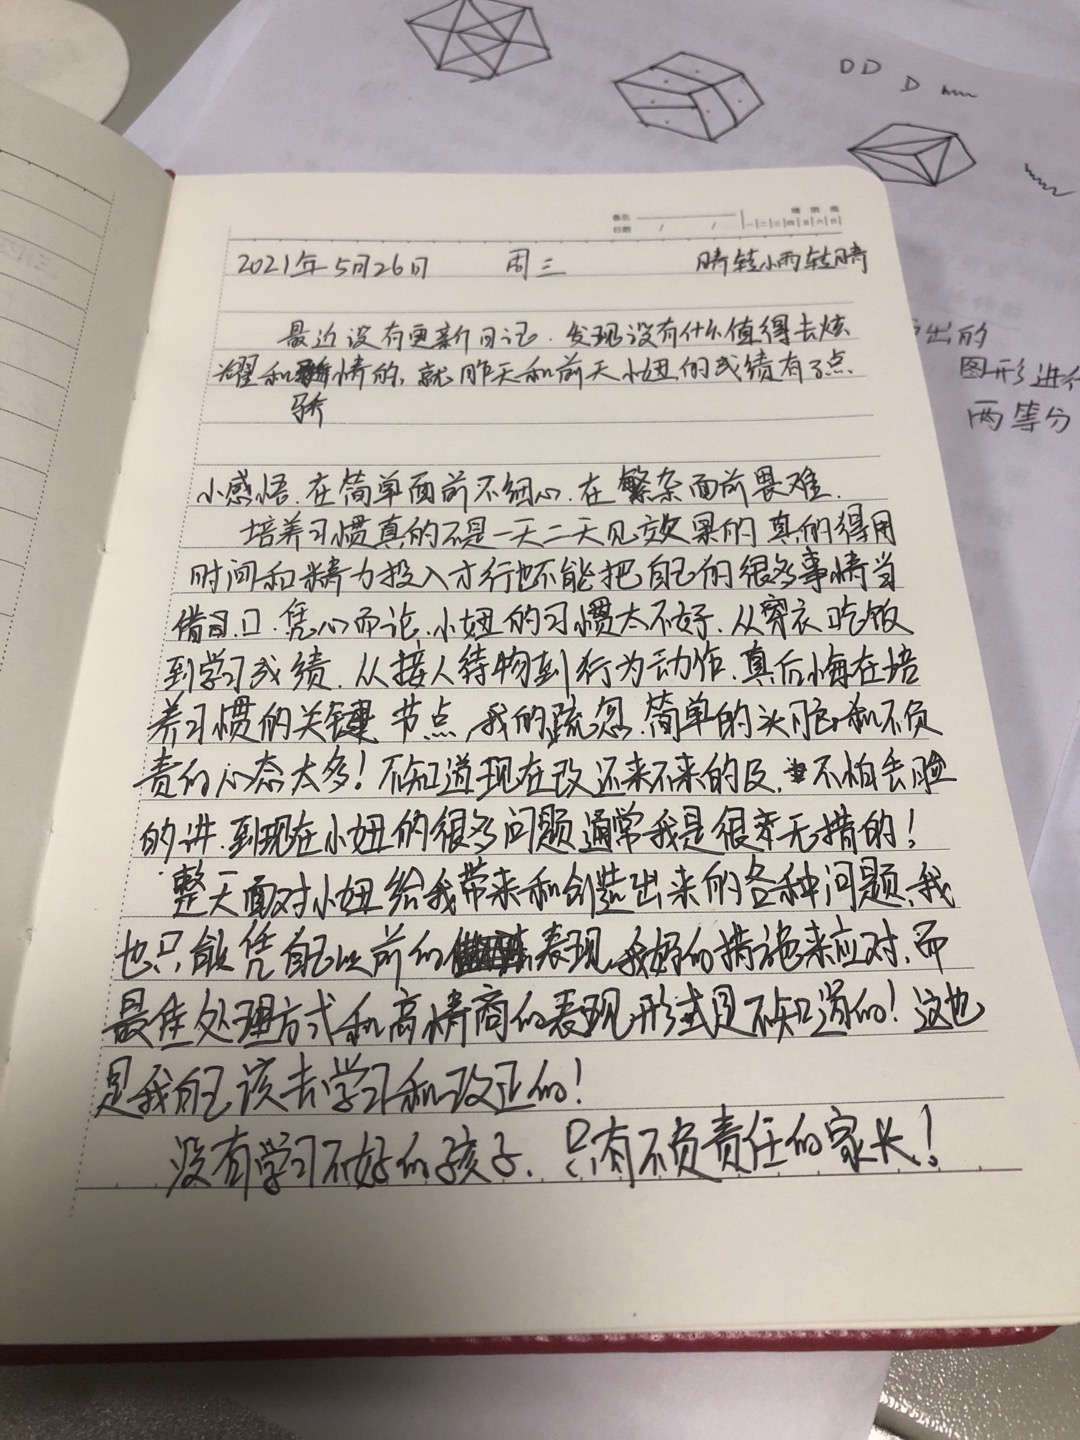 DD D
出的
图形进行
两等分
备忘
日期 / /
2021年5月26日 周三 晴转小雨转晴
最近没有更新日记.发现没有什么值得去炫
耀和骄情的,就昨天和前天小妞的成绩有了点
小感悟.在简单面前不细心.在繁杂面前畏难.
培养习惯真的不是一天二天见效果的真的得用
时间和精力投入才行也不能把自己的很多事情当
借口.凭心而论.小妞的习惯太不好.从穿衣吃饭
到学习成绩.从接人待物到行为动作.真后悔在培
养习惯的关键节点,我的疏忽.简单的头脑和不负
责的心态太多!不知道现在改还来不来的及.不怕丢脸
的讲.到现在小妞的很多问题通常我是很束无措的!
整天面对小妞给我带来和创造出来的各种问题、我
也只能凭自己以前的表现、我妈的措施来应对.而
最佳处理方式和高情商的表现形式是不知道的!这也
是我自己该去学习和改正的!
没有学习不好的孩子.只有不负责任的家长!